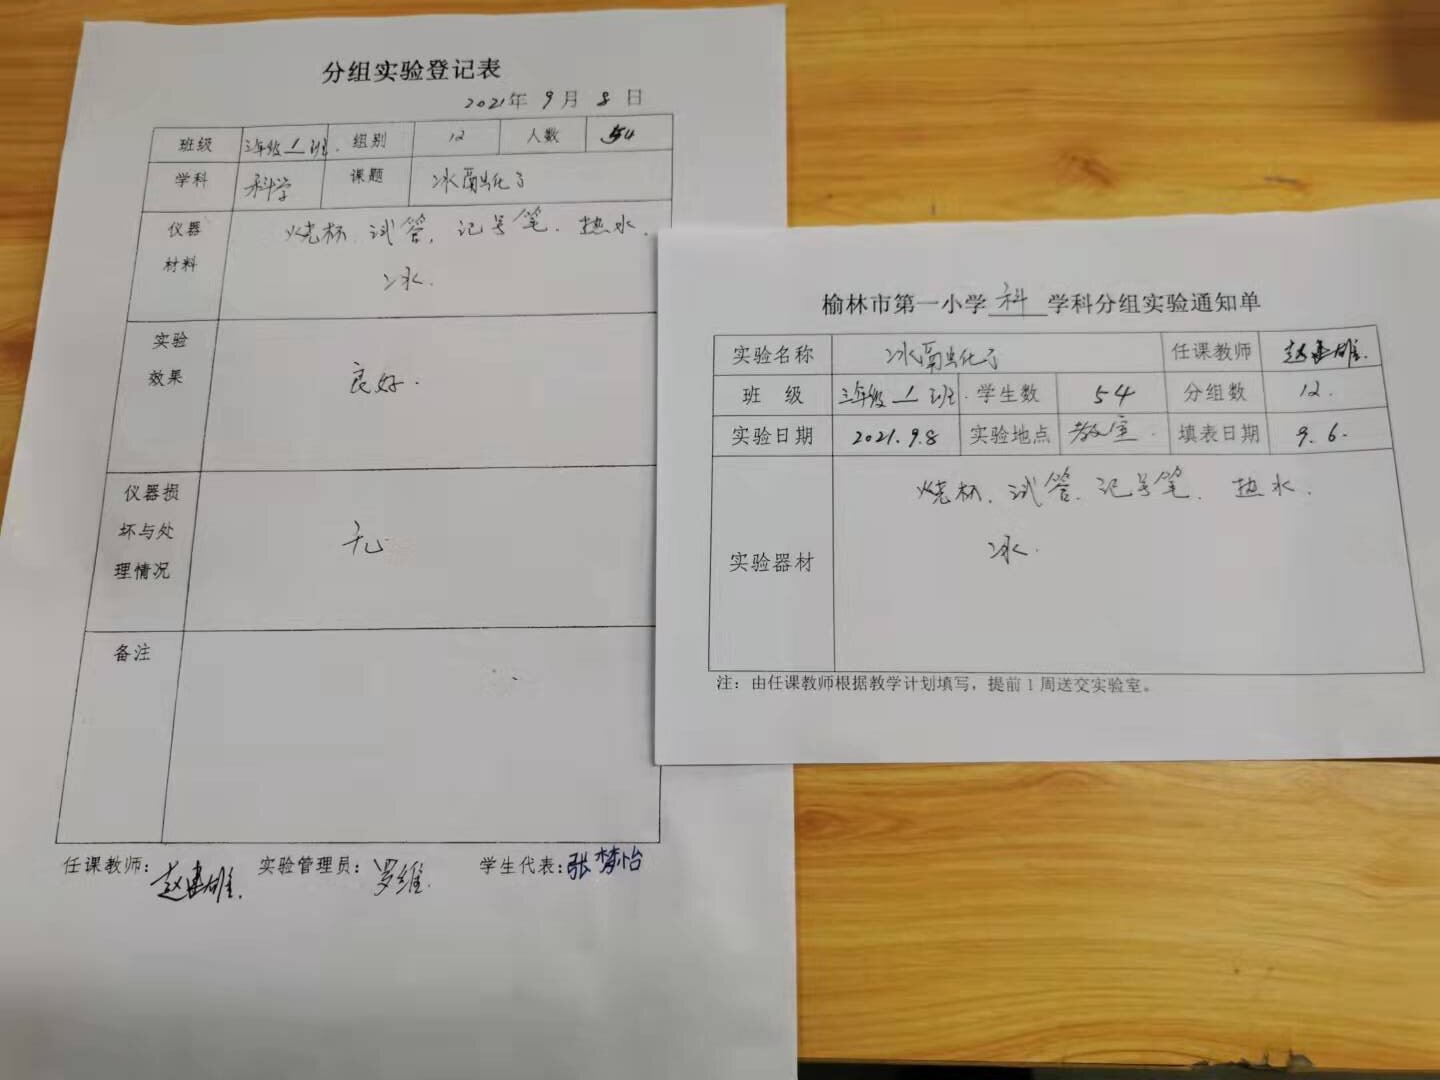 分组实验登记表
2021年 9月 8日
班级 三年级1班. 组别 12 人数 54
学科 科学 课题 冰融化了
仪器 烧杯、试管、记号笔、热水、
材料 冰.
实验
效果 良好.
仪器损
坏与处 无
理情况
备注
任课教师: 赵建雄. 实验管理员: 罗维. 学生代表: 张梦怡
榆林市第一小学 科 学科分组实验通知单
实验名称 冰融化了 任课教师 赵建雄.
班 级 三年级1班. 学生数 54 分组数 12.
实验日期 2021.9.8 实验地点 教室. 填表日期 9.6.
烧杯、试管、记号笔、热水.
冰.
实验器材
注：由任课教师根据教学计划填写，提前1周送交实验室。